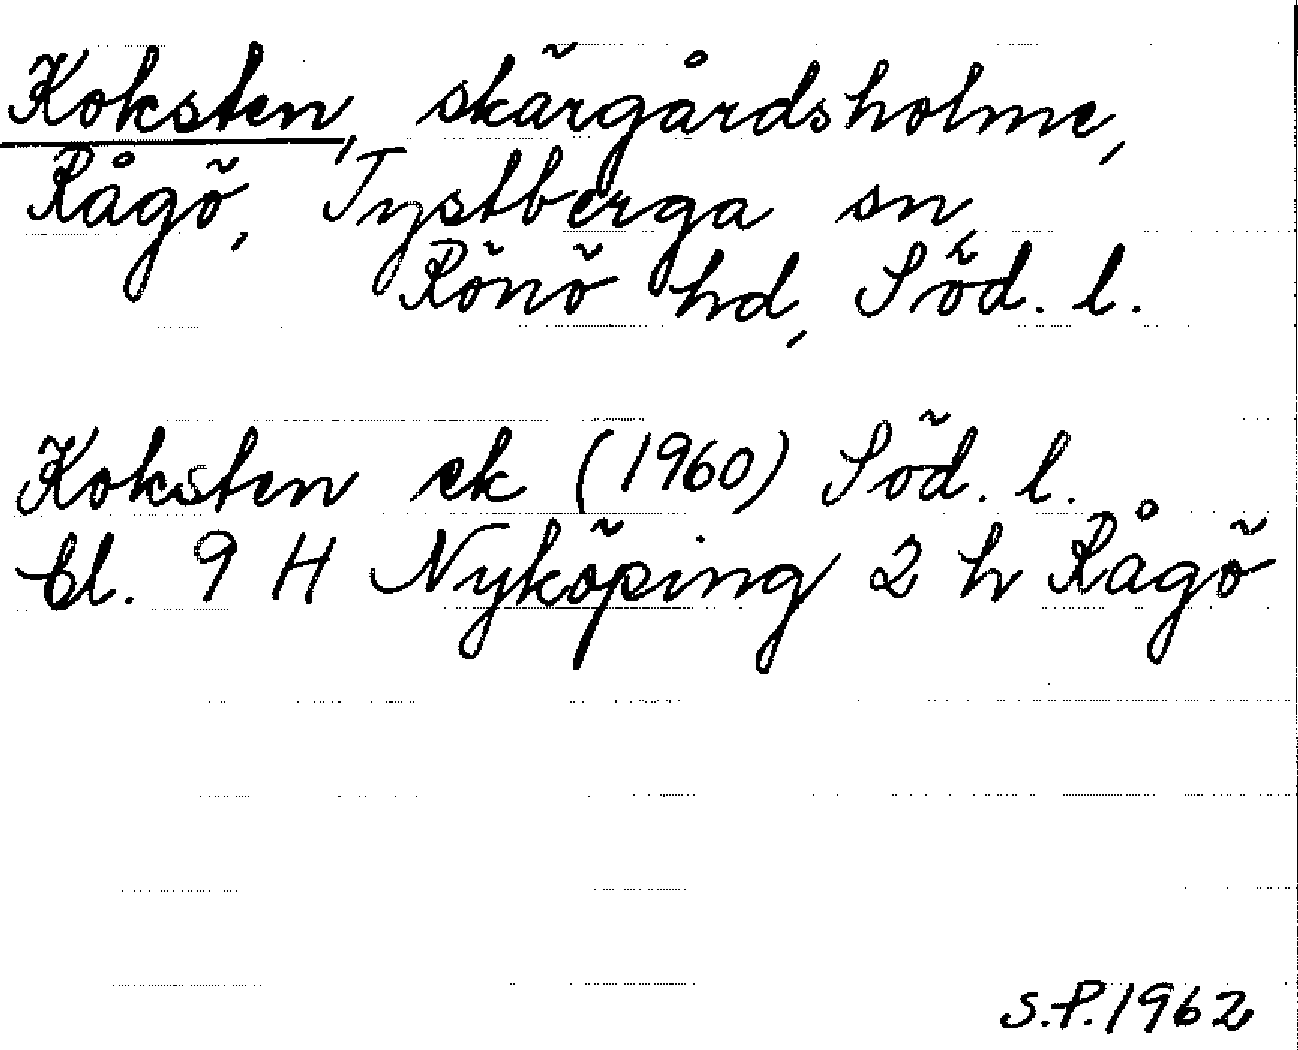 Koksten, skärgårdsholme,
Rågö, Tystberga sn,
Rönö hd, Söd. l.
Koksten ek (1960) Söd. l.
bl. 9 H Nyköping 2 h Rågö
S.P. 1962